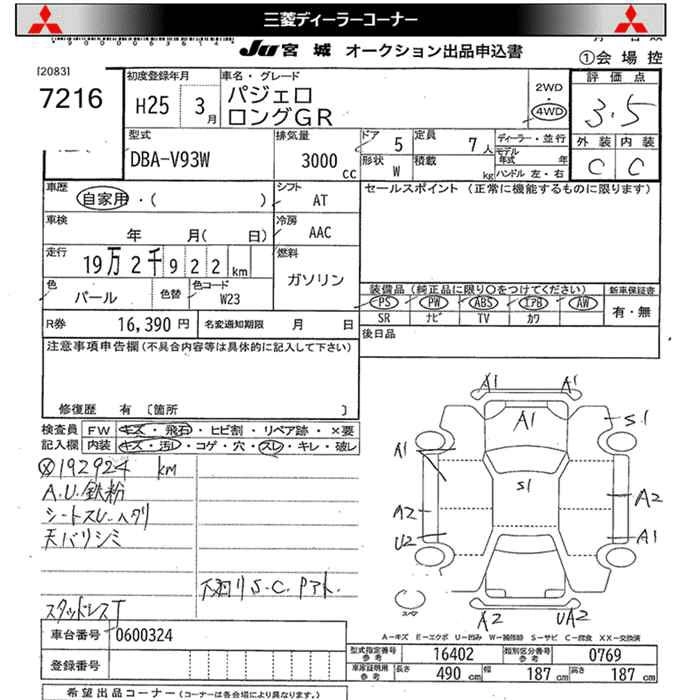 三菱ディーラーコーナー
JU 宮城 オークション出品申込書
①会場控
[2083]
7216
初度登録年月
H25 3月
車名・グレード
パジェロ
ロングGR
2WD
4WD
評価点
3.5
外装 内装
C C
型式
DBA-V93W
排気量
3000 cc
ドア 5
形状 W
定員 7人
積載 kg
ディーラー・並行
モデル年式 年
ハンドル 左・右
車歴
自家用・( )
シフト
AT
セールスポイント (正常に機能するものに限ります)
車検
年 月( 日)
冷房
AAC
走行
19万2千922km
燃料
ガソリン
色
パール
色替
色コード
W23
装備品 (純正品に限り○をつけてください)
PS PW ABS エアB AW
SR ナビ TV カワ
新車保証書
有・無
R券 16,390円
名変通知期限 月 日
後日品
注意事項申告欄(不具合内容等は具体的に記入して下さい)
修復歴 有 〔箇所 〕
検査員記入欄
FW キズ・飛石・ヒビ割・リペア跡・×要
内装 キズ・汚レ・コゲ・穴・スレ・キレ・破レ
192924 km
A.U.鉄粉
シートスレ・ヘタリ
天バリシミ
下回りS.C.
スタッドレスT
A1 A1
A1
S1
A1
S1
A2
A2
U2
A1
スペア
A2 UA2
A-キズ E-エクボ U-凹み W-補修跡 S-サビ C-腐食 XX-交換済
車台番号 0600324
登録番号
型式指定番号 参考 16402
類別区分番号 参考 0769
車家証明用 参考 長さ 490cm 幅 187cm 高さ 187cm
希望出品コーナー (コーナーは各会場により異なります。)